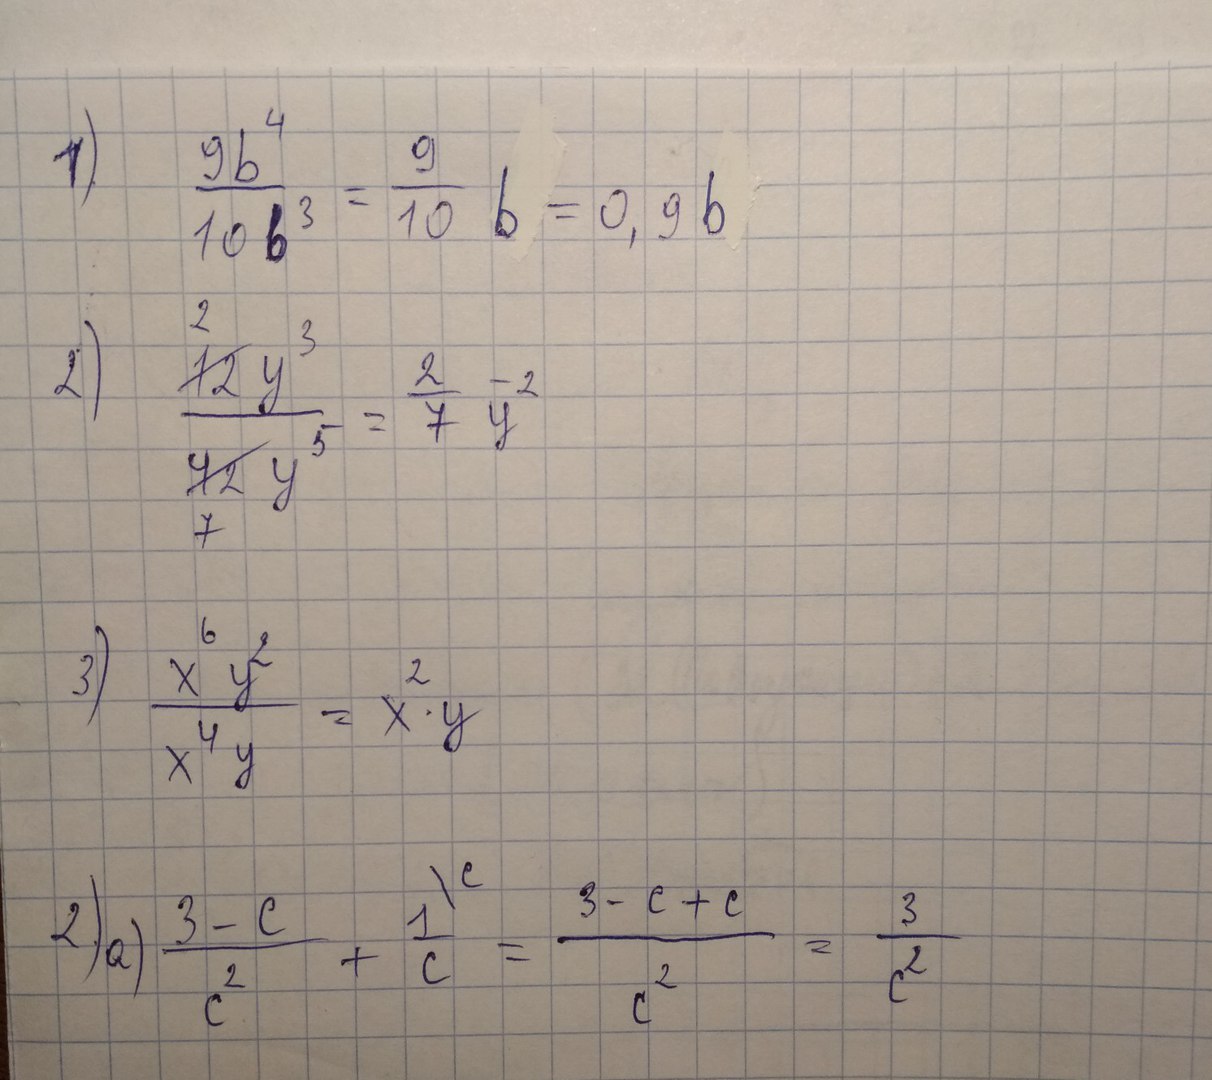 1) 9b⁴/10b³ = 9/10 b = 0,9b
2) 2 12y³/42y⁵ 7 = 2/7 y⁻²
3) x⁶y²/x⁴y = x²·y
2) a) 3-c/c² + 1\c/c = 3-c+c/c² = 3/c²